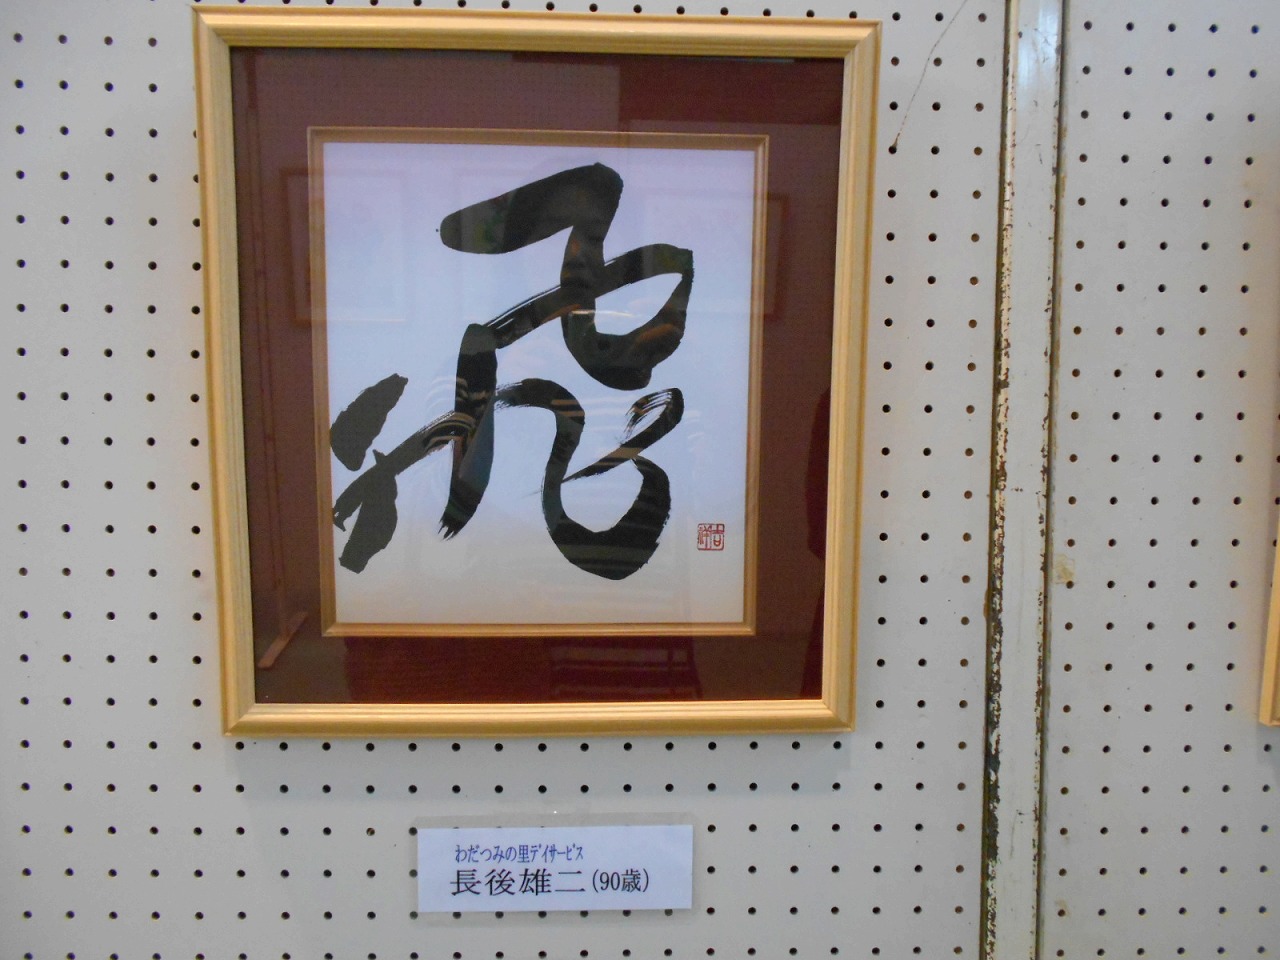 飛
わだつみの里ﾃﾞｲｻｰﾋﾞｽ
長後雄二(90歳)